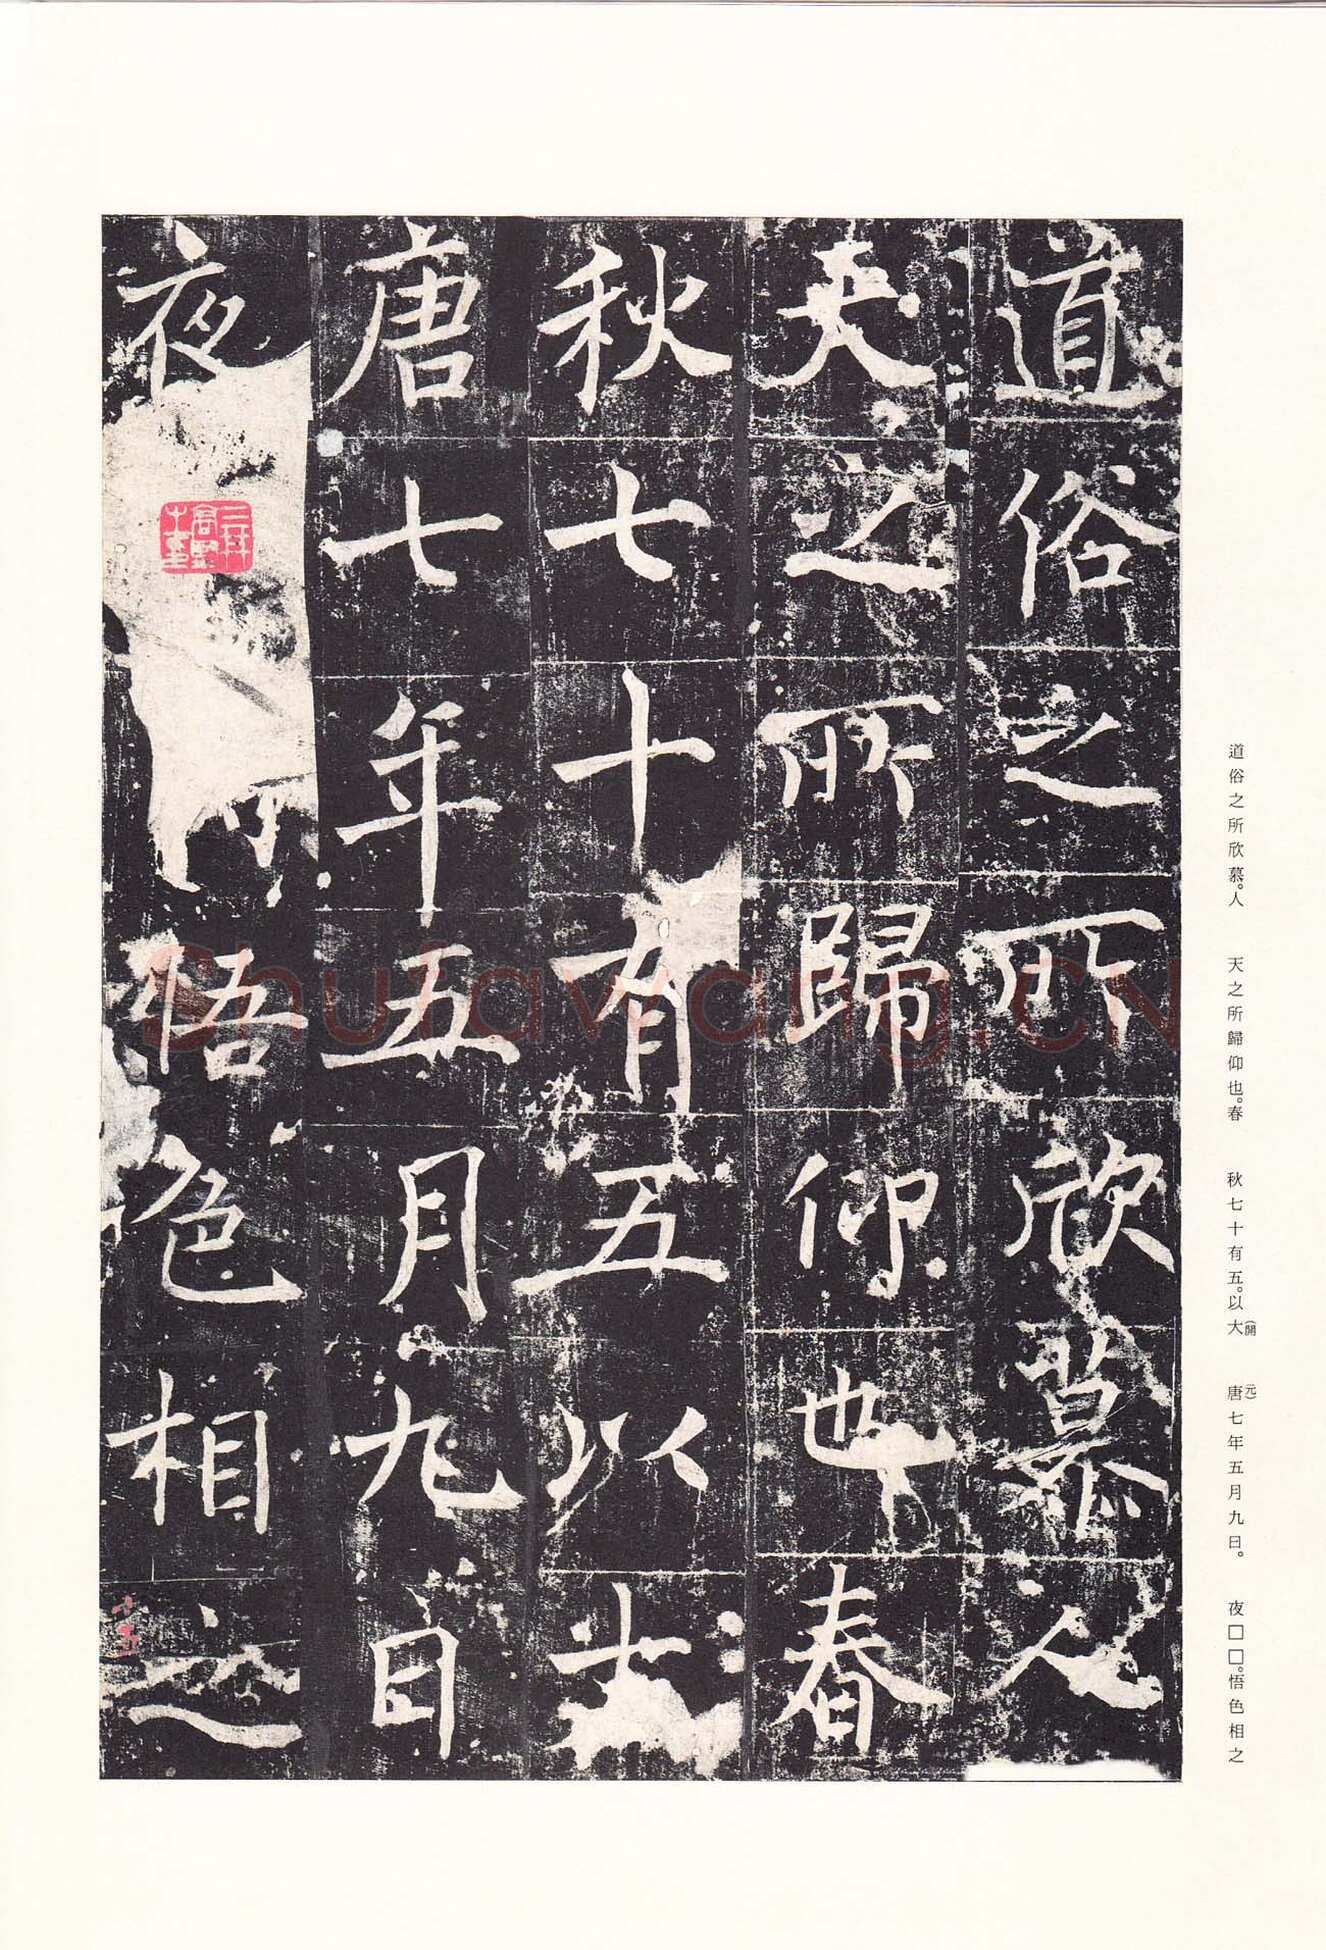 道俗之所欣慕人
天之所歸仰也春
秋七十有五以大
唐七年五月九日
夜悟色相之
道俗之所欣慕。人　天之所歸仰也。春　秋七十有五。以大(開　元)唐七年五月九日。　夜□□。悟色相之
Shufawang.CN